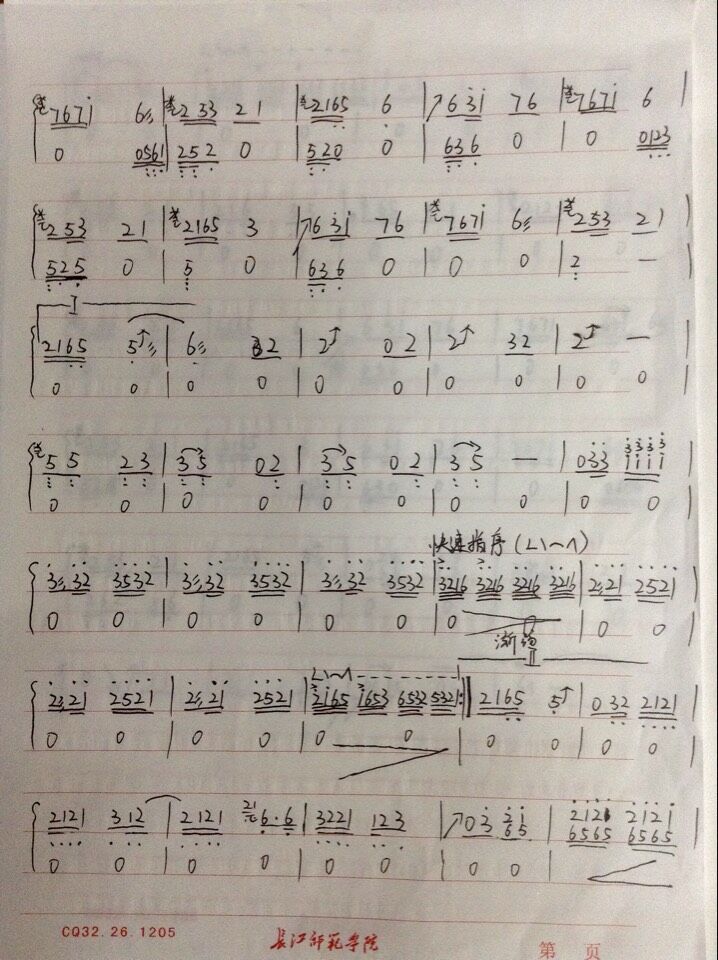 7671 6 | 253 21 | 2165 6 | 7631 76 | 7671 6 |
0 0561 | 252 0 | 520 0 | 636 0 | 0 0123
253 21 | 2165 3 | 7631 76 | 7671 6 | 253 21 |
525 0 | 5 0 | 636 0 | 0 0 | 2 —
I
2165 5 | 6 32 | 2 02 | 2 32 | 2 — |
0 0 | 0 0 | 0 0 | 0 0 | 0 0
55 23 | 35 02 | 35 02 | 35 — | 033 1111 |
3333
0 0 | 0 0 | 0 0 | 0 0 | 0 0
快速指序
332 3532 | 332 3532 | 332 3532 | 3216 3216 3216 3216 | 221 2521 |
0 0 | 0 0 | 0 0 | 0 0 | 0 0
II
221 2521 | 221 2521 | 2165 1653 6532 5321 :| 2165 5 | 032 2121 |
0 0 | 0 0 | 0 0 | 0 0 | 0 0
2121 312 | 2121 6·6 | 3221 123 | 03 21 | 2121 2121 |
65 6565 6565
0 0 | 0 0 | 0 0 | 0 0 | 0
CQ32.26.1205 长江师范学院 第 页